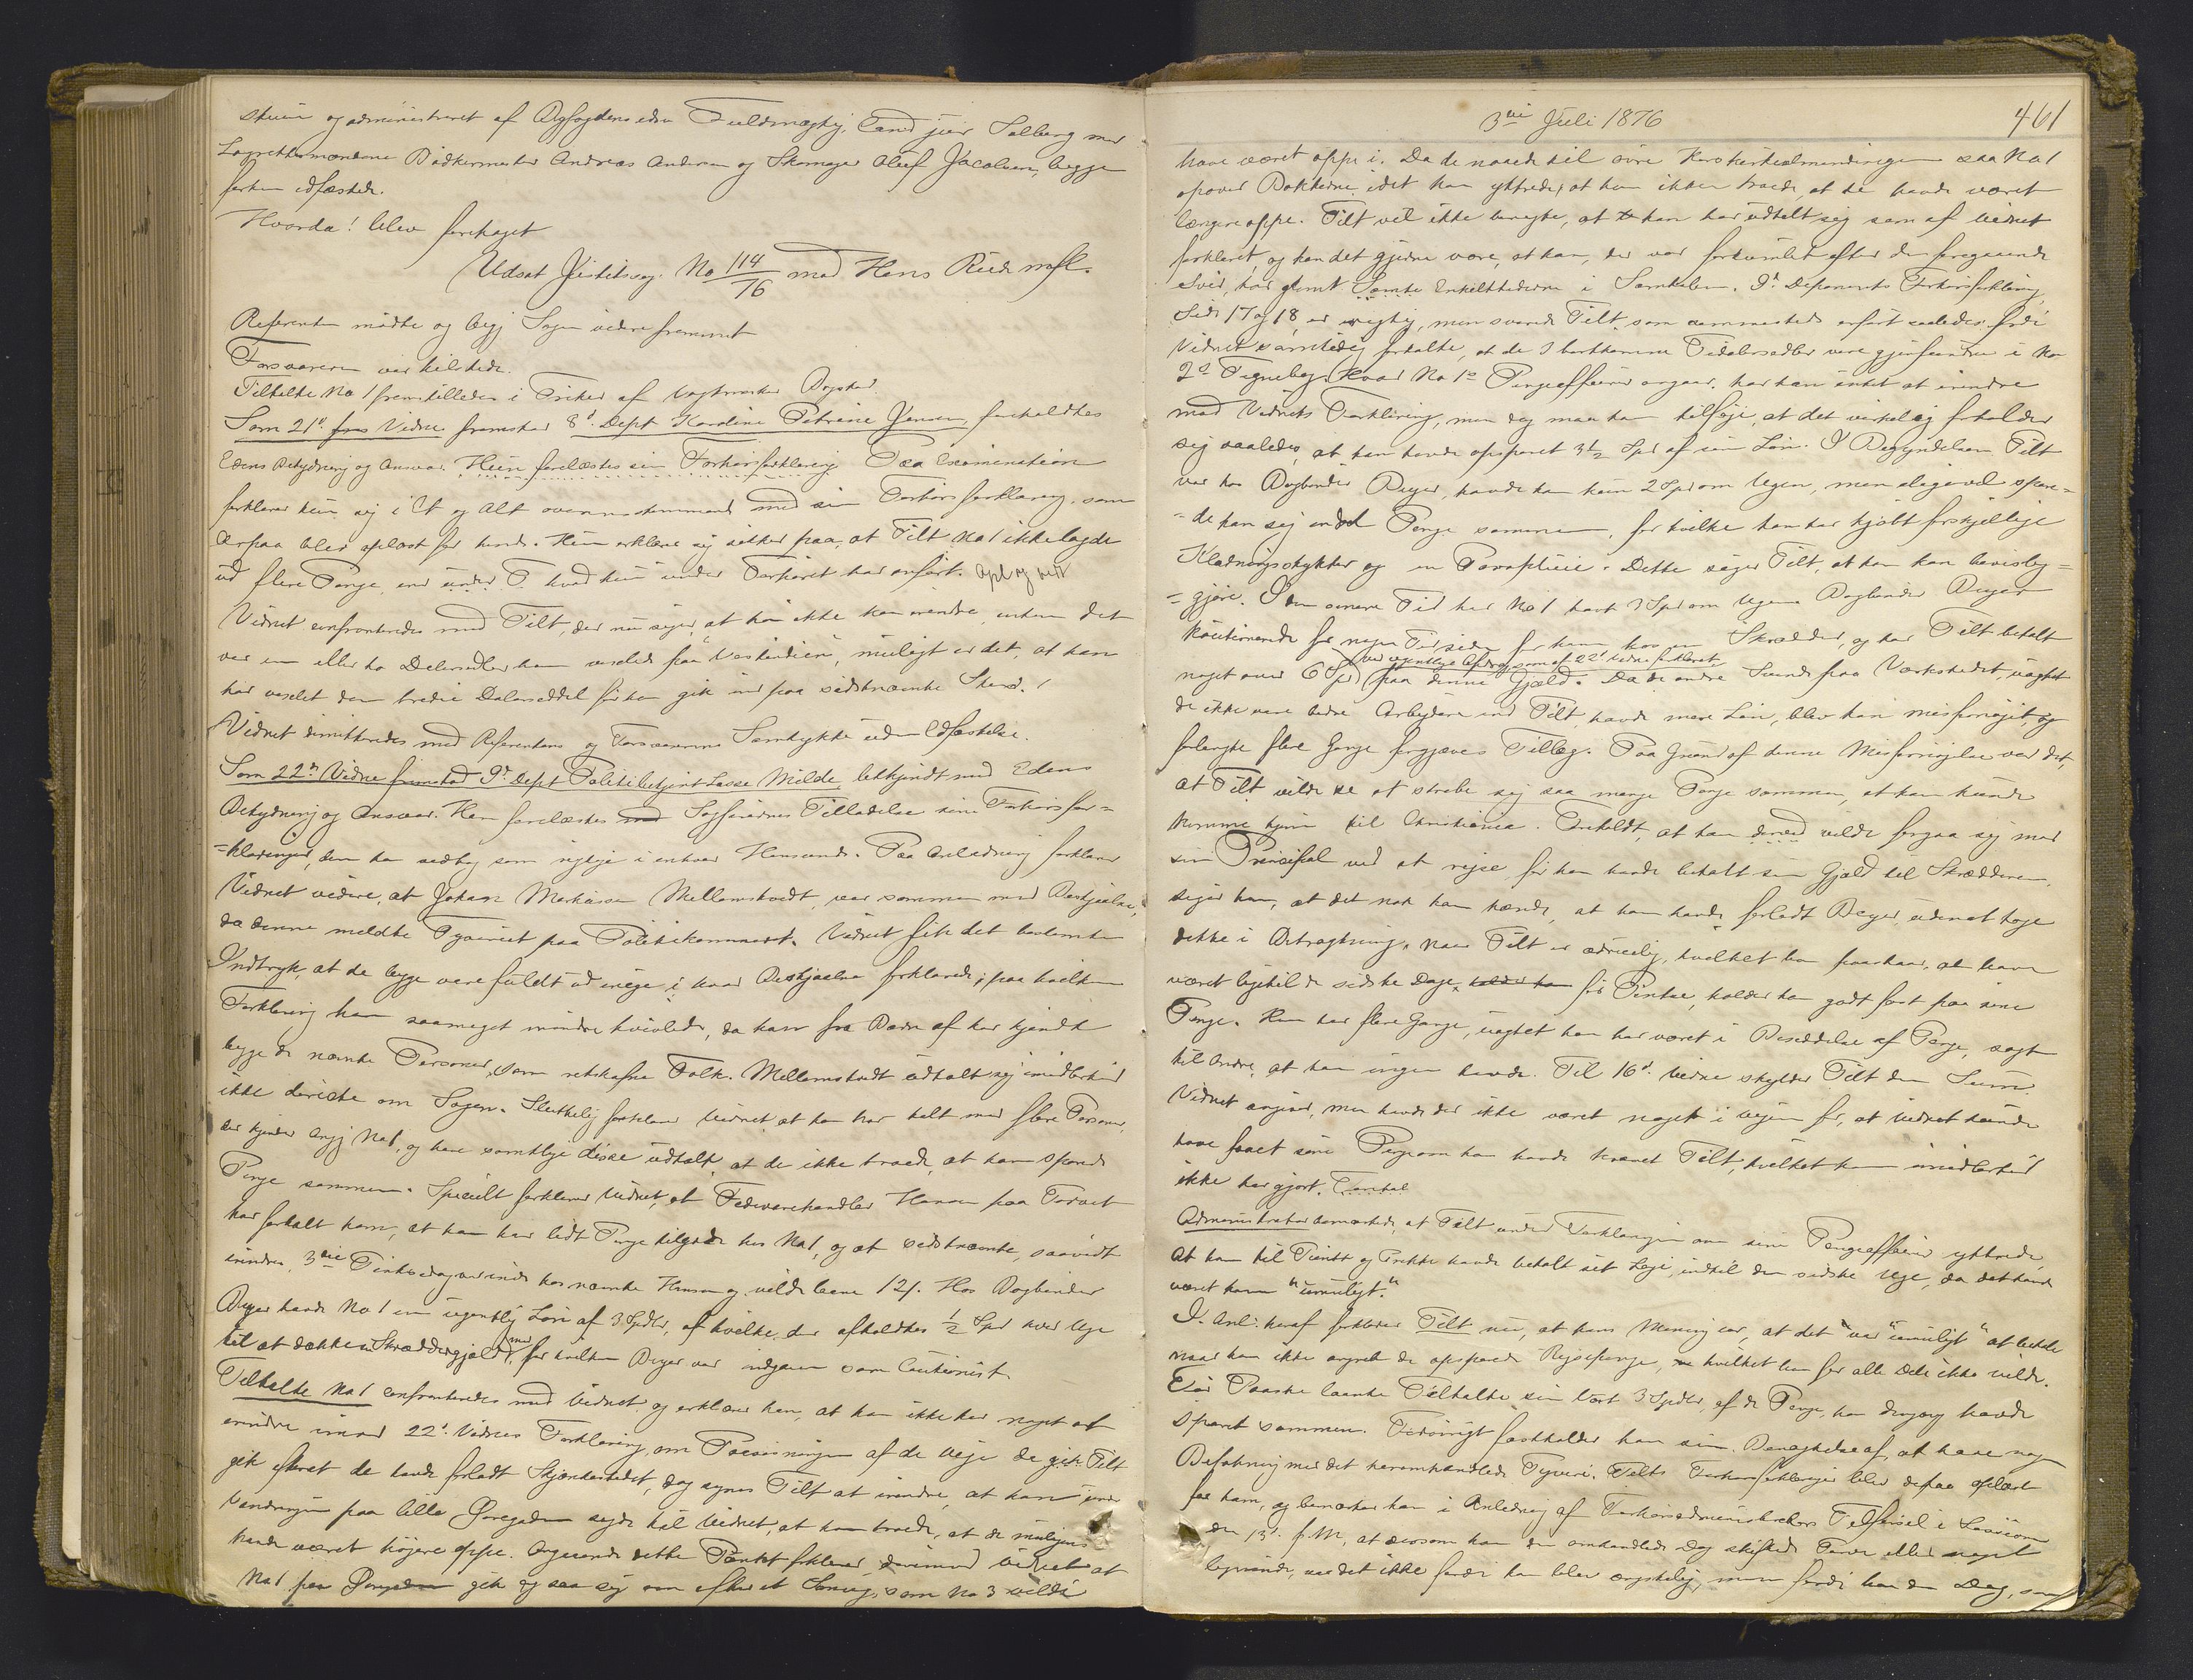 stuen og administreret af Byfogdens edsv Fuldmægtig, Cand jur Solberg med
Lagrettesmændene Bødkermester Andreas Andersen og Skomager Oluf Jacobsen, begge
forhen edfæstede.
Hvorda! blev foretaget
Udsat Justitssag No 114/76 mod Hans Ruud mfl.
Referenten mødte og begj Sagen videre fremmet
Forsvareren var tilstede.
Tiltalte No 1 fremstilledes i Frihed af Vagtmester
Som 21d Vidne fremstod 8d Dept Karoline Petrine Jensen, foreholdtes
Edens Betydning og Ansvar. Hun forelæstes sin Forhørsforklaring. Paa Examination
forklarer hun sig i Et og Alt overensstemmende med sin Forhørsforklaring, som
derpaa blev oplæst for hende. Hun erklærer sig sikker paa, at Tilt No 1 ikke lagde
ud flere Penge, end under hvad hun under Forhøret har anført. Opl og vedt
Vidnet confronteredes med Tilt, der nu siger, at han ikke kan erindre, enten det
var en eller to Dalersedler han vexlede paa "Vestindien", muligt er det, at han
har vexlet den tredie Dalerseddel før han gik ind paa sidstnævnte Sted.
Vidnet dimitteredes med Referentens og Forsvarerens Samtykke uden Edfæstelse.
Som 22d Vidne fremstod 9d Dept Politibetjent Lasse Milde bekjendt med Edens
Betydning og Ansvar. Han forelæstes med Sagførernes Tilladelse sine Forhørsfor=
=klaringer, dem han vedtog som rigtige i enhver Henseende. Paa Anledning forklarer
Vidnet videre, at Johan Mathisen Mellemstvedt var sammen med
da denne meldte Tyveriet paa Politikammeret. Vidnet fik det bestemte
Indtryk, at de begge vare fuldt ud enige i hvad forklarede; paa hvilken
Forklaring han saameget mindre tvivlede, da han fra Barn af har kjendt
begge de nævnte Personer, som retskafne Folk. Mellemstvedt udtalte sig imidlertid
ikke directe om Sagen. Sluttelig forklarer Vidnet at han har talt med flere Personer,
der kjender Angj No 1, og have samtlige disse udtalt, at de ikke troede, at han sparede
Penge sammen. Specielt forklarer Vidnet, at Fedevarehandler Hansen paa Torvet
har fortalt ham, at han har lidt Penge tilgode hos No 1, og at sidstnævnte, saavidt
erindres, 3die Pintsedag var inde hos nævnte Hansen og vilde laane 12 s. Hos Bogbinder
Beyer havde No 1 en ugentlig Løn af 3 Spdlr, af hvilke der afholdtes 1/2 Spd hver Uge
til at dække en Skræddergjæld, for hvilken Beyer var indgaaet som Cautionist.
Tiltalte No 1 confronteredes med Vidnet og erklærer han, at han ikke har noget at
erindre imod 22d Vidnes Forklaring om Passeringen af de Veje de gik Tilt
gik efterat de havde forladt Skjænkestedet, dog synes Tilt at erindre, at han under
Vandringen paa lille Øvregaden sagde til Vidnet, at han troede, at de muligens
havde været højere oppe. Angaaende dette Punkt forklarer derimod Vidnet at
No 1 paa Øvregaden gik og saa sig om efter et Smug, som No 3 vilde
3die Juli 1876
461
have været oppe i. Da de naaede til øvre Korskirkealmendingen saa No 1
opover Bakkerne, idet han yttrede, at han ikke troede, at de havde været
længere oppe. Tilt vil ikke benegte, at han har udtalt sig som af Vidnet
forklaret, og kan det gjerne være, at han, der var forkumlet efter den foregaaende
Sviir, har glemt Enkelthederne i Samtalen. 9d Deponents Forhørsforklaring
Side 17 og 18, er rigtig, men svarede Tilt som sammesteds anført saaledes fordi
Vidnet samtidig fortalte, at de 3 bortkomne Fidalersedler vare gjenfundne i No
2s Tegnebog. Hvad No 1s Pengeaffairer angaar, har han intet at erindre
mod Vidnets Forklaring, men dog maa han tilføje, at det virkelig forholder
sig saaledes, at han havde opsparet 3 1/2 Spd af sin Løn. I Begyndelsen Tilt
var hos Bogbinder Beyer, havde han kun 2 Spd om Ugen, men aligevel spare=
=de han sig endel Penge sammen, for hvilke han har kjøbt forskjellige
Klædningsstykker og en Paraplui. Dette siger Tilt, at han kan bevislig=
=gjøre. I den senere Tid har No 1 havt 3 Spd om Ugen. Bogbinder Beyer
kautionerede for nogen Tid siden for ham hos en Skrædder, og har Tilt betalt
noget over 6 Spd ved ugentlige Afdrag, som af 22d Vidne forklaret paa denne Gjæld. Da de andre Svende paa Værkstedet, uagtet
de ikke vare bedre Arbejdere end Tilt, havde mere Løn, blev han misfornøjet, og
forlangte flere Gange forgjæves Tillæg. Paa Grund af denne Misfornøjelse var det,
at Tilt vilde se at skrabe sig saa mange Penge sammen, at han kunde
komme hjem til Christiania. Foreholdt, at han derved vilde forgaa sig mod
sin Principal ved at rejse før han havde betalt sin Gjæld til Skrædderen,
siger han, at det nok kan hænde, at han havde forladt Beyer uden at tage
dette i Betragtning. Naar Tilt er ædruelig, hvilket han paastaar, at have
været ligetil de sidste Dage før Pintse, holder han godt fast paa sine
Penge. Han har flere Gange, uagtet han har været i Besiddelse af Penge, sagt
til Andre, at han ingen havde. Til 16d Vidne skylder Tilt den Sum
Vidnet angiver, men havde der ikke været noget i Vejen for, at Vidnet kunde
have faaet sine Penge om han havde krævet Tilt, hvilket han imidlertid
ikke har gjort.
Administrator bemærkede, at Tilt under Forklaringen om sine Pengeaffairer yttrede,
at han til Punkt og Prikke havde betalt sit Logi, indtil den sidste Uge, da det havde
været ham "umuligt."
I Anl: heraf forklarer Tilt nu, at hans Mening var, at det "var umuligt" at betale
naar han ikke angreb de opsparede Rejsepenge, hvilket han for alle Dele ikke vilde.
Før Paaske laante Tiltalte sin bort 3 Spdlr, af de Penge, han dengang havde
sparet sammen. Forøvrigt fastholder han sin Benægtelse af, at have nog
Befatning med det heromhandlede Tyveri. Tilts Forhørsforklaringer blev derpaa oplæst
for ham, og bemærker han i Anledning af Forhørsadministrators Tilførsel i
den 13d f. M, at dersom han den omhandlede Dag skiftede Farve eller noget
lignende, var det ikke fordi han blev ængstelig, men fordi han den Dag, som